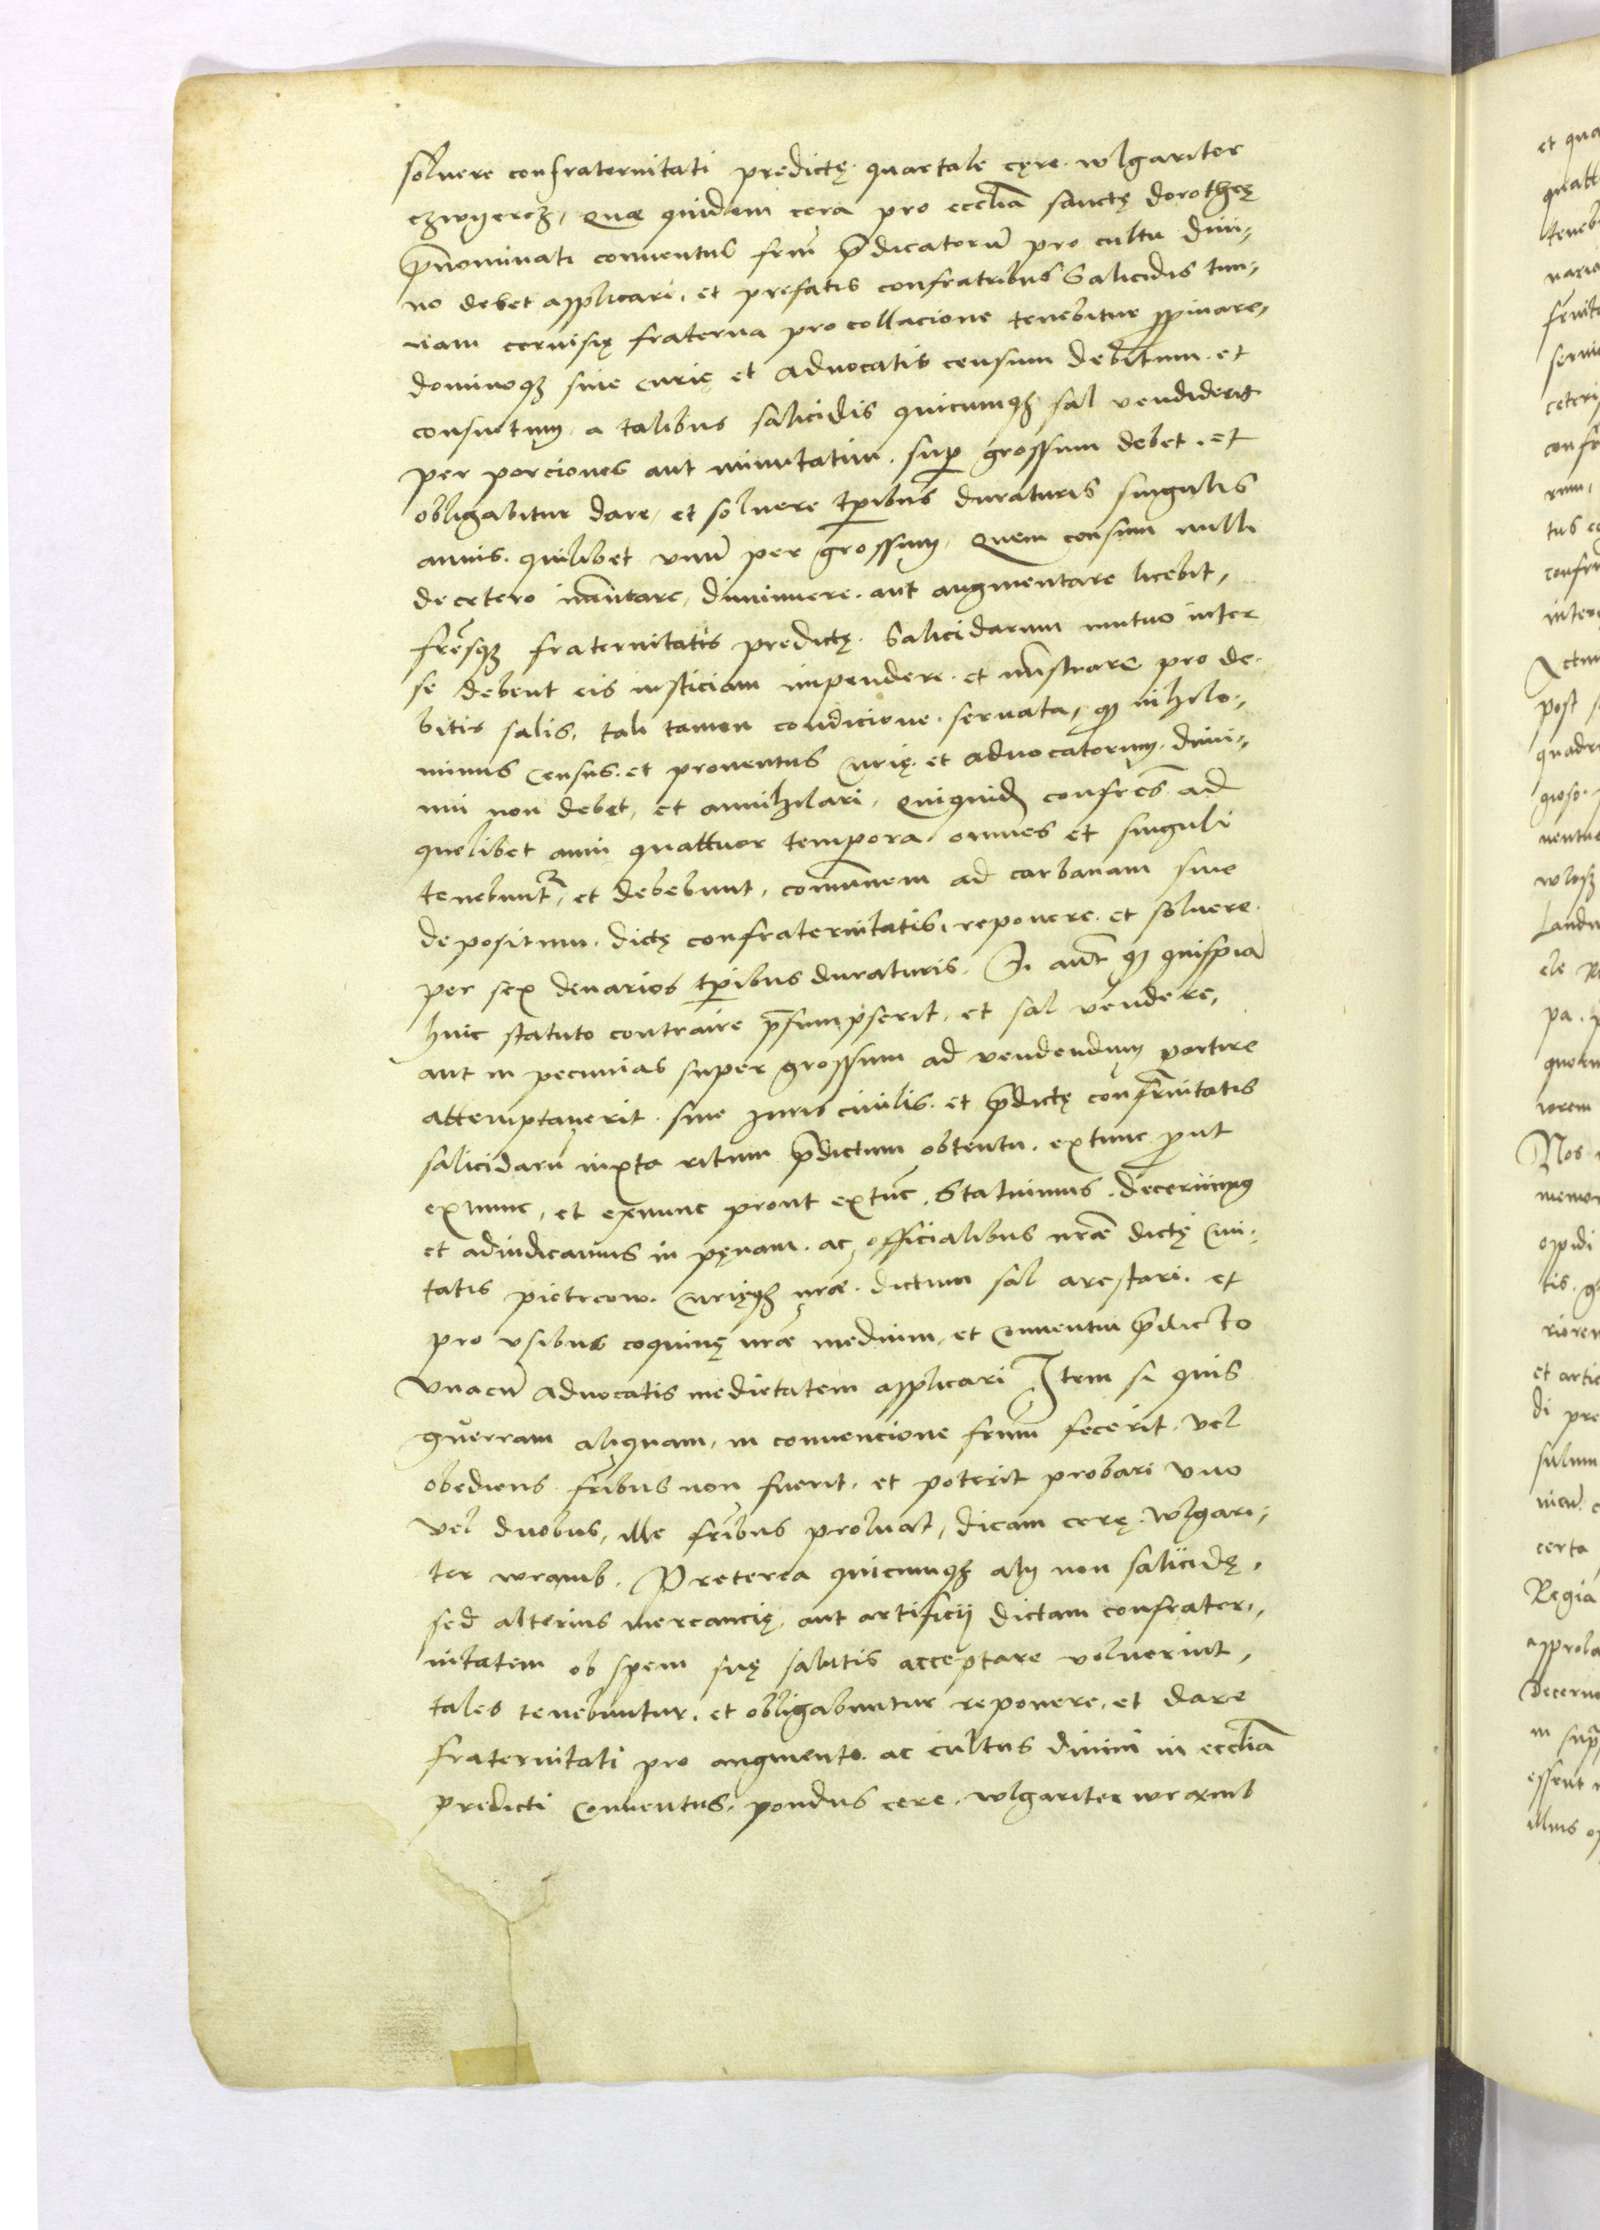 soluere confraternitati predictę quartale cęre wlgariter
czwyercz, Quæ quidem cera pro eccliã sanctę dorotheę
p̃nominati conuentus frũ p̃dicatorũ pro cultu diui-
no debet applicari, et prefatis confratribus Salicidis tun-
nam ceruisię fraterna pro collacione tenebitur ppinare,
dominoqʒ siue curię et aduocatis censum debitum et
consuetum a talibus salicidis quicumqʒ sal vendiderit
per porciones aut minutatim sup grossum debet et
obligabitur dare, et soluere tp̃ibus duraturis singulis
annis quilibet vnũ per grossum, Quem censum nulli
de cetero diminuere aut augmentare licebit,
frẽsqʒ fraternitatis predictę Salicidarum mutuo inter
se debent eis iusticiam impendere et mĩstrare pro de-
bitis salis, tali tamen condicione seruata, qʒ nihilo-
minus census et prouentus curię et aduocatorum dimi-
nui non debet, et annihilari, Quiquidẽ confrẽs ad
quelibet anni quattuor tempora omnes et singuli
tenebunt̃, et debebunt, comũnem ad carbanam siue
depositum dictę confraternitatis, reponere et soluere
per sex denarios tp̃ibus duraturis. Si aũt qʒ quispiã
huic statuto contraire p̃sumpserit, et sal vendere,
aut in pecunias super grossum ad vendendum partire
attemptauerit siue Iuris ciuilis et p̃dictę confrñitatis
salicidarũ iuxta ritum p̃dictum obtentu, extunc put
exnunc, et exnunc prout extũc, Statuimus decernimus
et adiudicamus in pęnam, ac officialibus nrẽ dictę ciui-
tatis pietrcow, Curięqʒ nrẽ dictum sal arestari, et
pro vsibus coquinę nrẽ medium, et conuentui p̃dicto
vnacũ aduocatis medietatem applicari Item si quis
guerram aliquam, in conuencione frũm fecerit vel
obediens frĩbus non fuerit, et poterit probari vno
vel duobus, ille frĩbus proluat, dicam cerę wlgari-
ter wramb. Preterea quicumqʒ alij non salicidę,
sed alterius mercancię, aut artificij dictam confrater-
nitatem ob spem suę salutis acceptare voluerint,
tales tenebuntur, et obligabuntur reponere, et dare
fraternitati pro augmento ac cultus diuini in eccliã
predicti conuentus, pondus cere wlgariter wramb